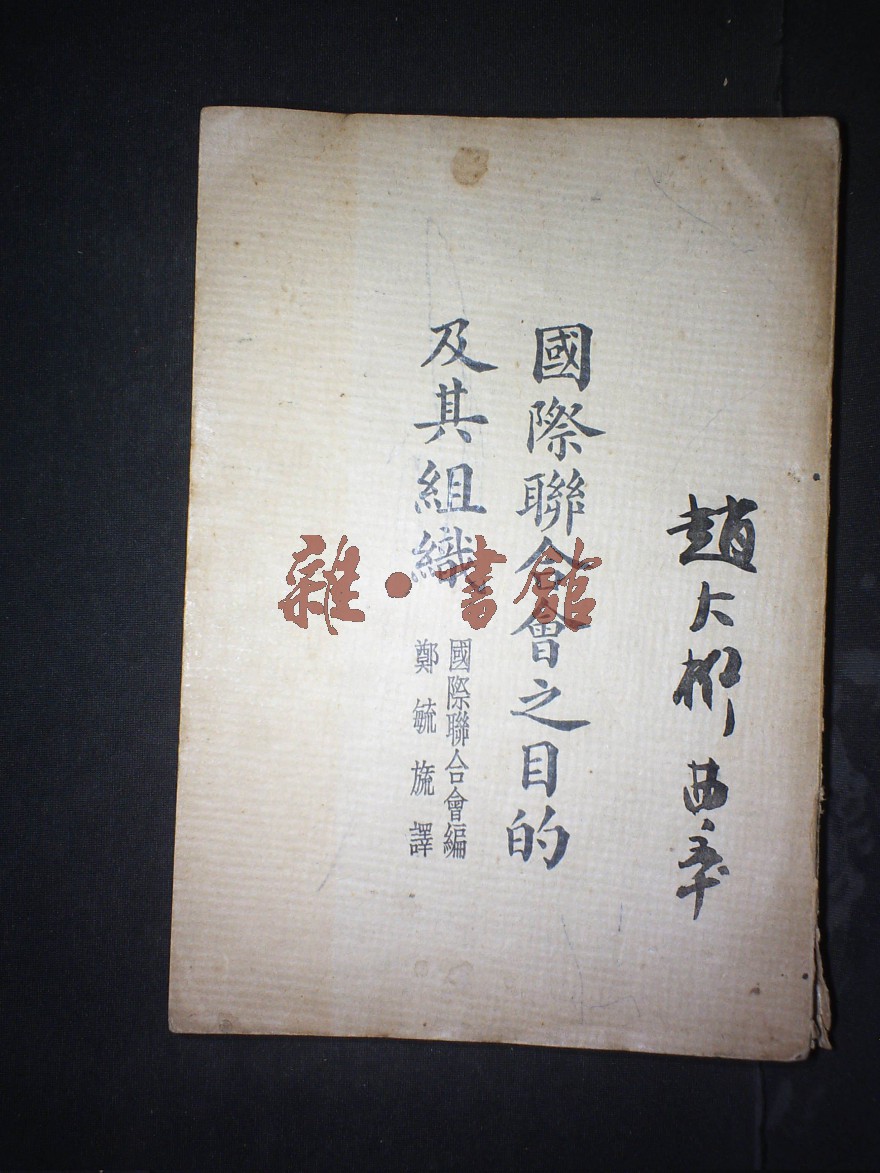 趙大
國際聯合會之目的
及其組織
國際聯合會編
鄭毓旒譯
雜·書館